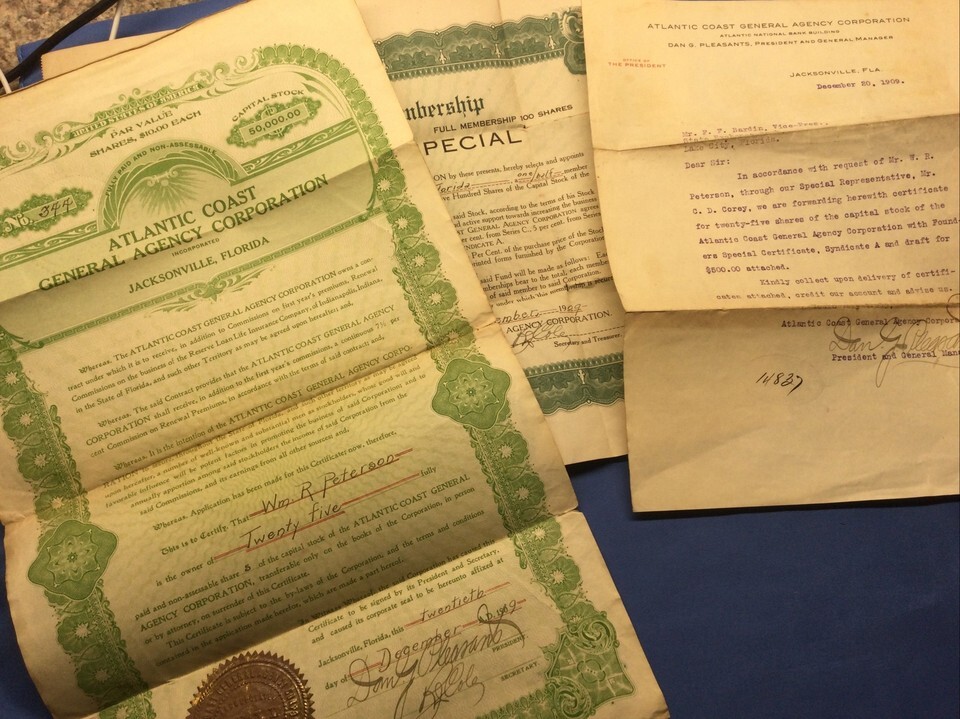 UNITED STATES OF AMERICA
PAR VALUE
SHARES, $10.00 EACH
CAPITAL STOCK
50,000.00
FULL PAID AND NON-ASSESSABLE
No. 344
ATLANTIC COAST
GENERAL AGENCY CORPORATION
INCORPORATED
JACKSONVILLE, FLORIDA
Whereas. The ATLANTIC COAST GENERAL AGENCY CORPORATION owns a con-
tract under which it is to receive, in addition to Commissions on first year's premiums, Renewal
Commissions on the business of the Reserve Loan Life Insurance Company, of Indianapolis, Indiana,
in the State of Florida, and such other Territory as may be agreed upon hereafter; and,
Whereas. The said Contract provides that the ATLANTIC COAST GENERAL AGENCY
CORPORATION shall receive, in addition to the first year's commissions, a continuous 7½ per
cent Commission on Renewal Premiums, in accordance with the terms of said contract; and,
Whereas. It is the intention of the ATLANTIC COAST GENERAL AGENCY CORPO-
RATION
a number of well-known and substantial men as stockholders, whose good will and
valuable influence will be potent factors in promoting the business of said Corporation, and to
annually apportion among said stockholders the income of said Corporation from the
said Commissions, and its earnings from all other sources; and,
Whereas. Application has been made for this Certificate; now, therefore,
This is to Certify. That Wm R Peterson
is the owner of Twenty Five fully
paid and non-assessable share s of the capital stock of the ATLANTIC COAST GENERAL
AGENCY CORPORATION, transferable only on the books of the Corporation, in person
or by attorney, on surrender of this Certificate.
This Certificate is subject to the by-laws of the Corporation, and the terms and conditions
contained in the application made therefor, which are made a part hereof.
has caused this
Certificate to be signed by its President and Secretary,
and caused its corporate seal to be hereunto affixed at
Jacksonville, Florida, this twentieth
day of December 1909
Dan G Pleasants
PRESIDENT.
SECRETARY
mbership
FULL MEMBERSHIP 100 SHARES
PECIAL
ON by these presents, hereby selects and appoints
Florida, one/half member
ve Hundred Shares of the Capital Stock of the
said Stock, according to the terms of his
nd active support towards increasing the business
T GENERAL AGENCY CORPORATION agrees
per cent. from Series C., 5 per cent. from Series
NDICATE A.
Per Cent. of the purchase price of the Stock
rinted forms furnished by the Corporation
said Fund will be made as follows: Each
mberships bear to the total, each member
of said member to said Corporation.
ember 1909
AGENCY CORPORATION.
Secretary and Treasurer
ATLANTIC COAST GENERAL AGENCY CORPORATION
ATLANTIC NATIONAL BANK BUILDING
DAN G. PLEASANTS, PRESIDENT AND GENERAL MANAGER
OFFICE OF
THE PRESIDENT
JACKSONVILLE, FLA.
December 20, 1909.
Mr. F. F. Bardin, Vice-Pres.,
Lake City, Florida.
Dear Sir:
In accordance with request of Mr. W. R.
Peterson, through our Special Representative, Mr.
C. D. Corey, we are forwarding herewith certificate
for twenty-five shares of the capital stock of the
Atlantic Coast General Agency Corporation with Found-
ers Special Certificate, Syndicate A and draft for
$500.00 attached.
Kindly collect upon delivery of certifi-
cates attached, credit our account and advise us.
Atlantic Coast General Agency Corpor
Dan G Pleasants
President and General Mana
14837